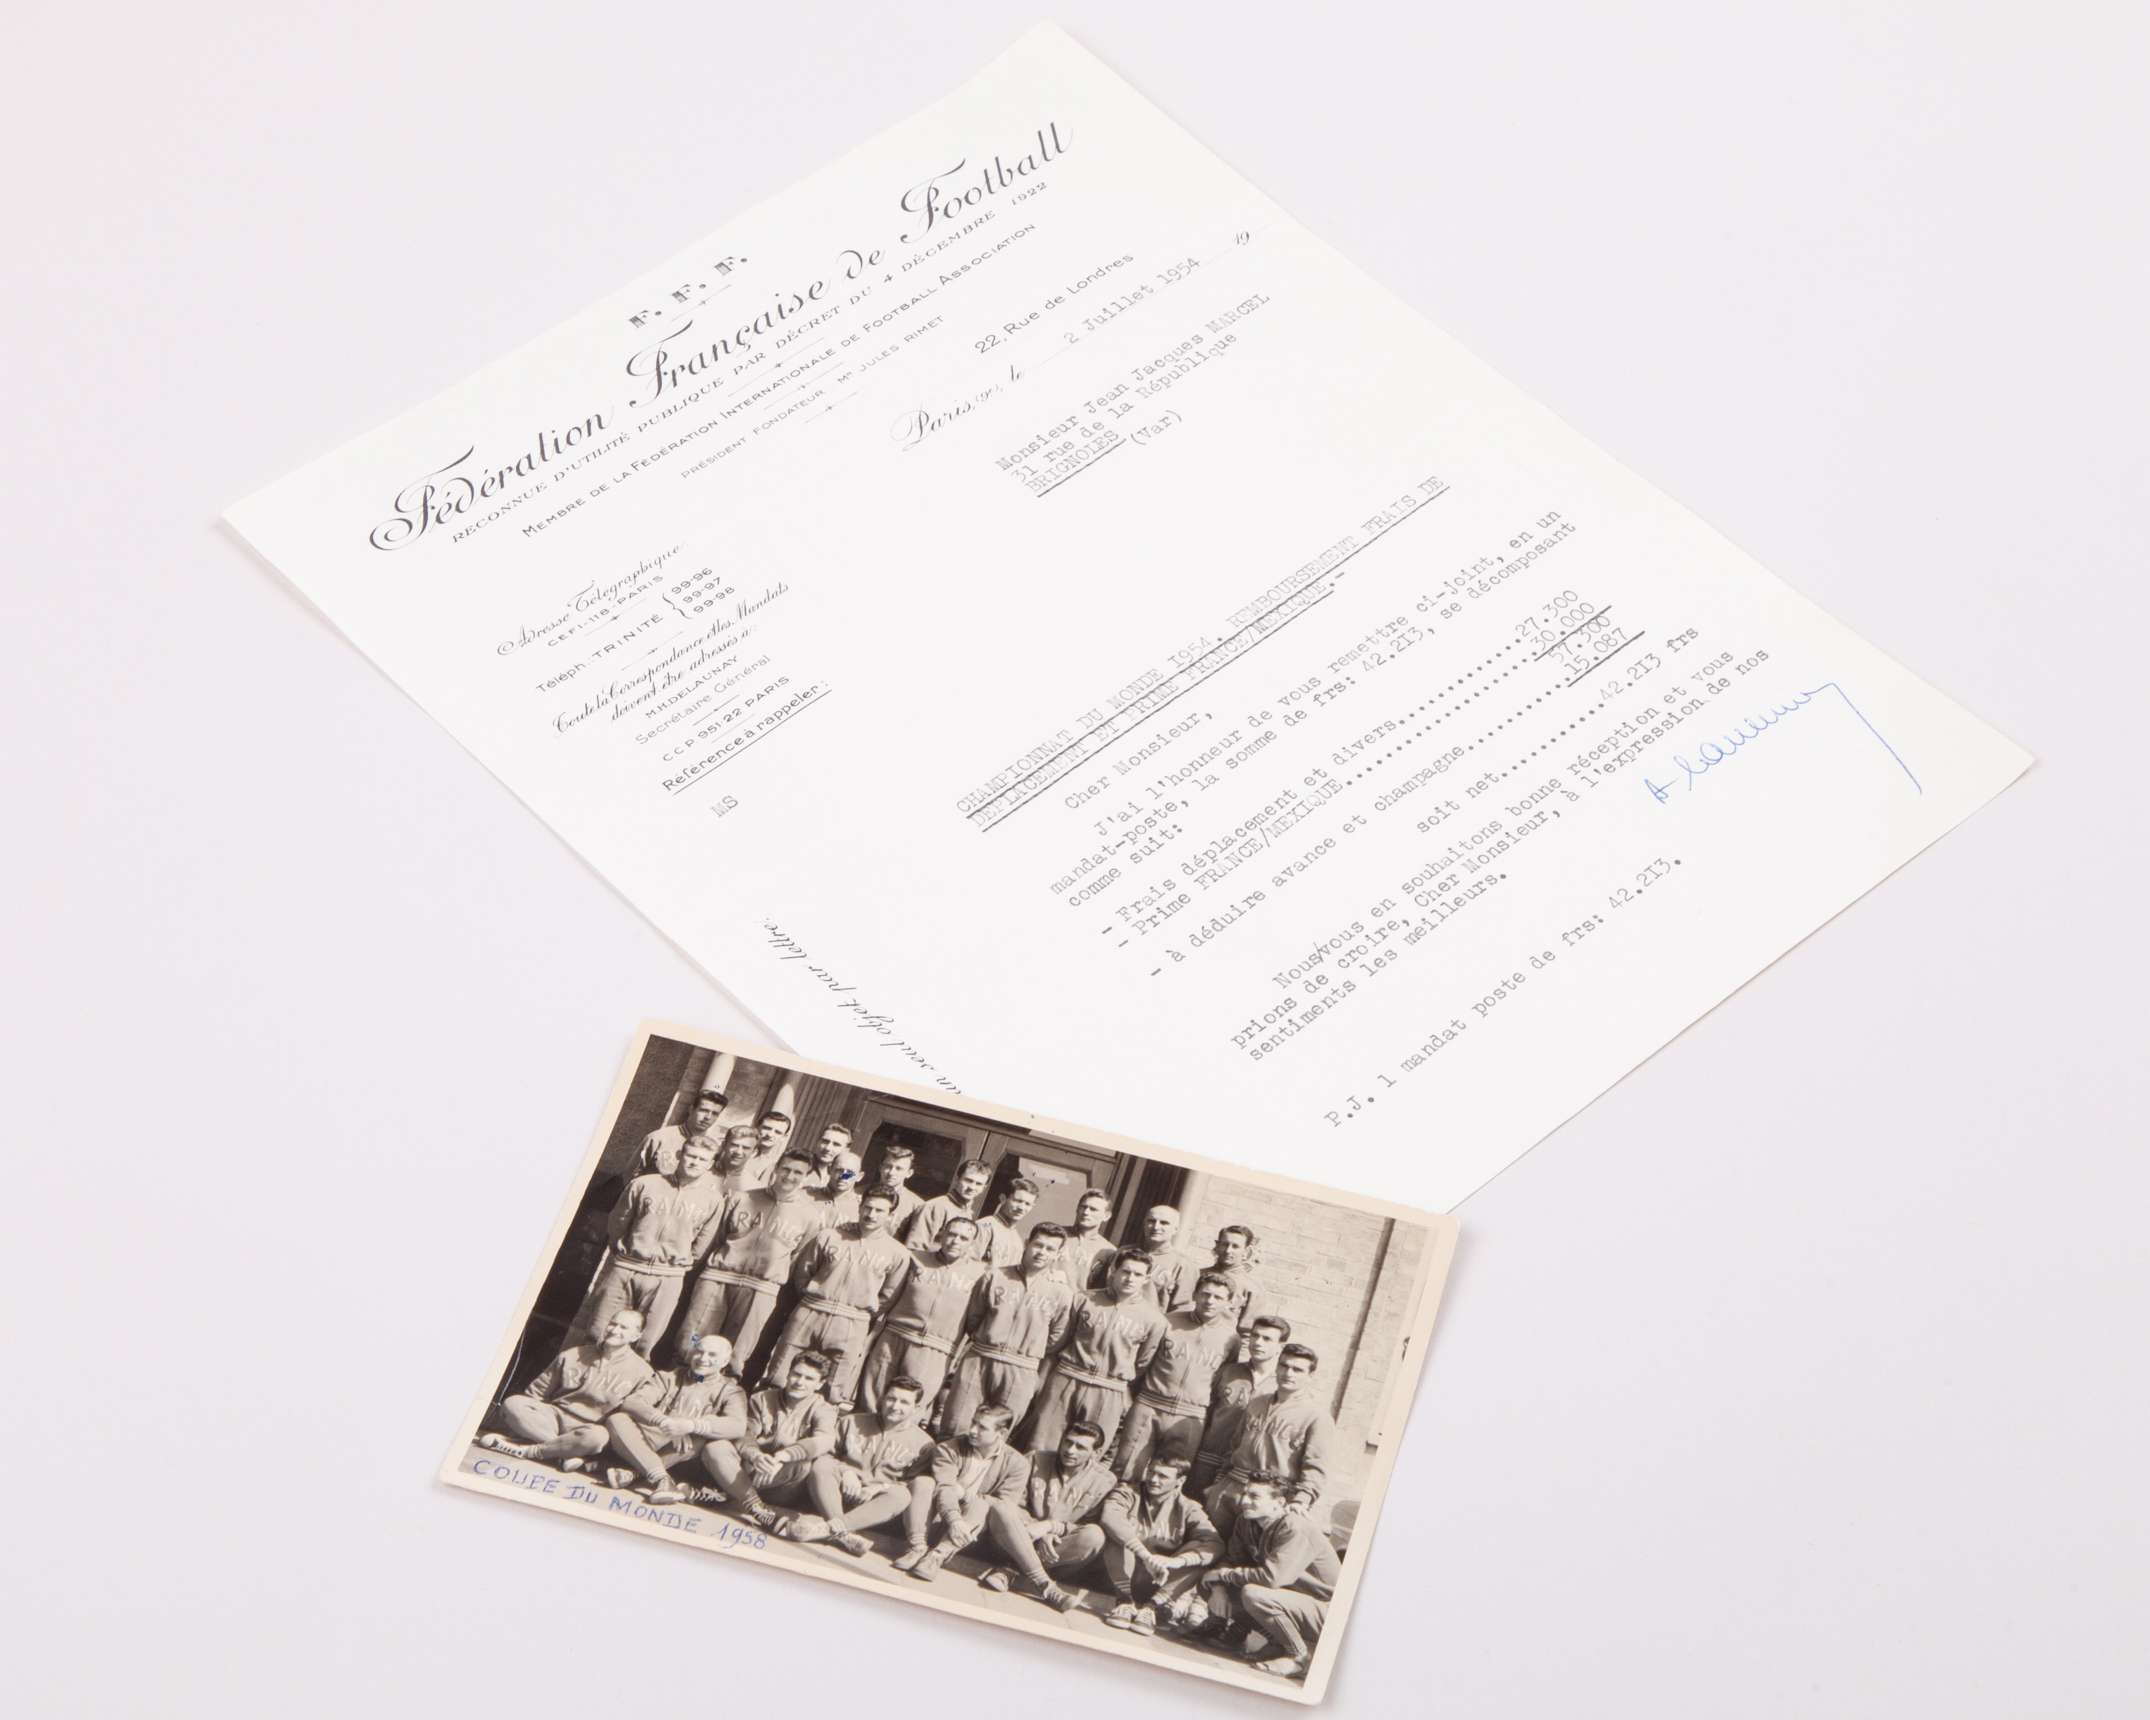 F. F. F.
Fédération Française de Football
RECONNUE D'UTILITÉ PUBLIQUE PAR DÉCRET DU 4 DÉCEMBRE 1922
MEMBRE DE LA FÉDÉRATION INTERNATIONALE DE FOOTBALL ASSOCIATION
PRÉSIDENT FONDATEUR Mr JULES RIMET
22, Rue de Londres
Paris, (9e), le 2 Juillet 1954 19
Monsieur Jean Jacques MARCEL
31 rue de la République
BRIGNOLES (Var)
Adresse Télégraphique:
CEFI-118-PARIS
Téléph.: TRINITÉ { 99-96
99-97
99-98
Toute la Correspondance et les Mandats
doivent être adressés à:
M.H. DELAUNAY
Secrétaire Général
C.C.P. 951-22 PARIS
Référence à rappeler:
MS
CHAMPIONNAT DU MONDE I954. REMBOURSEMENT FRAIS DE
DEPLACEMENT ET PRIME FRANCE/MEXIQUE.-
Cher Monsieur,
J'ai l'honneur de vous remettre ci-joint, en un
mandat-poste, la somme de frs: 42.2I3, se décomposant
comme suit:
- Frais déplacement et divers..............27.300
- Prime FRANCE/MEXIQUE.....................30.000
57.300
- à déduire avance et champagne............15.087
soit net............42.2I3 frs
Nous/vous en souhaitons bonne réception et vous
prions de croire, Cher Monsieur, à l'expression de nos
sentiments les meilleurs.
P.J. 1 mandat poste de frs: 42.2I3.
un seul objet par lettre.
RAINC
COUPE DU MONDE 1958